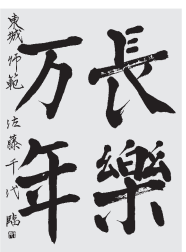 長樂
万年
東城 师範 佐藤千代 臨